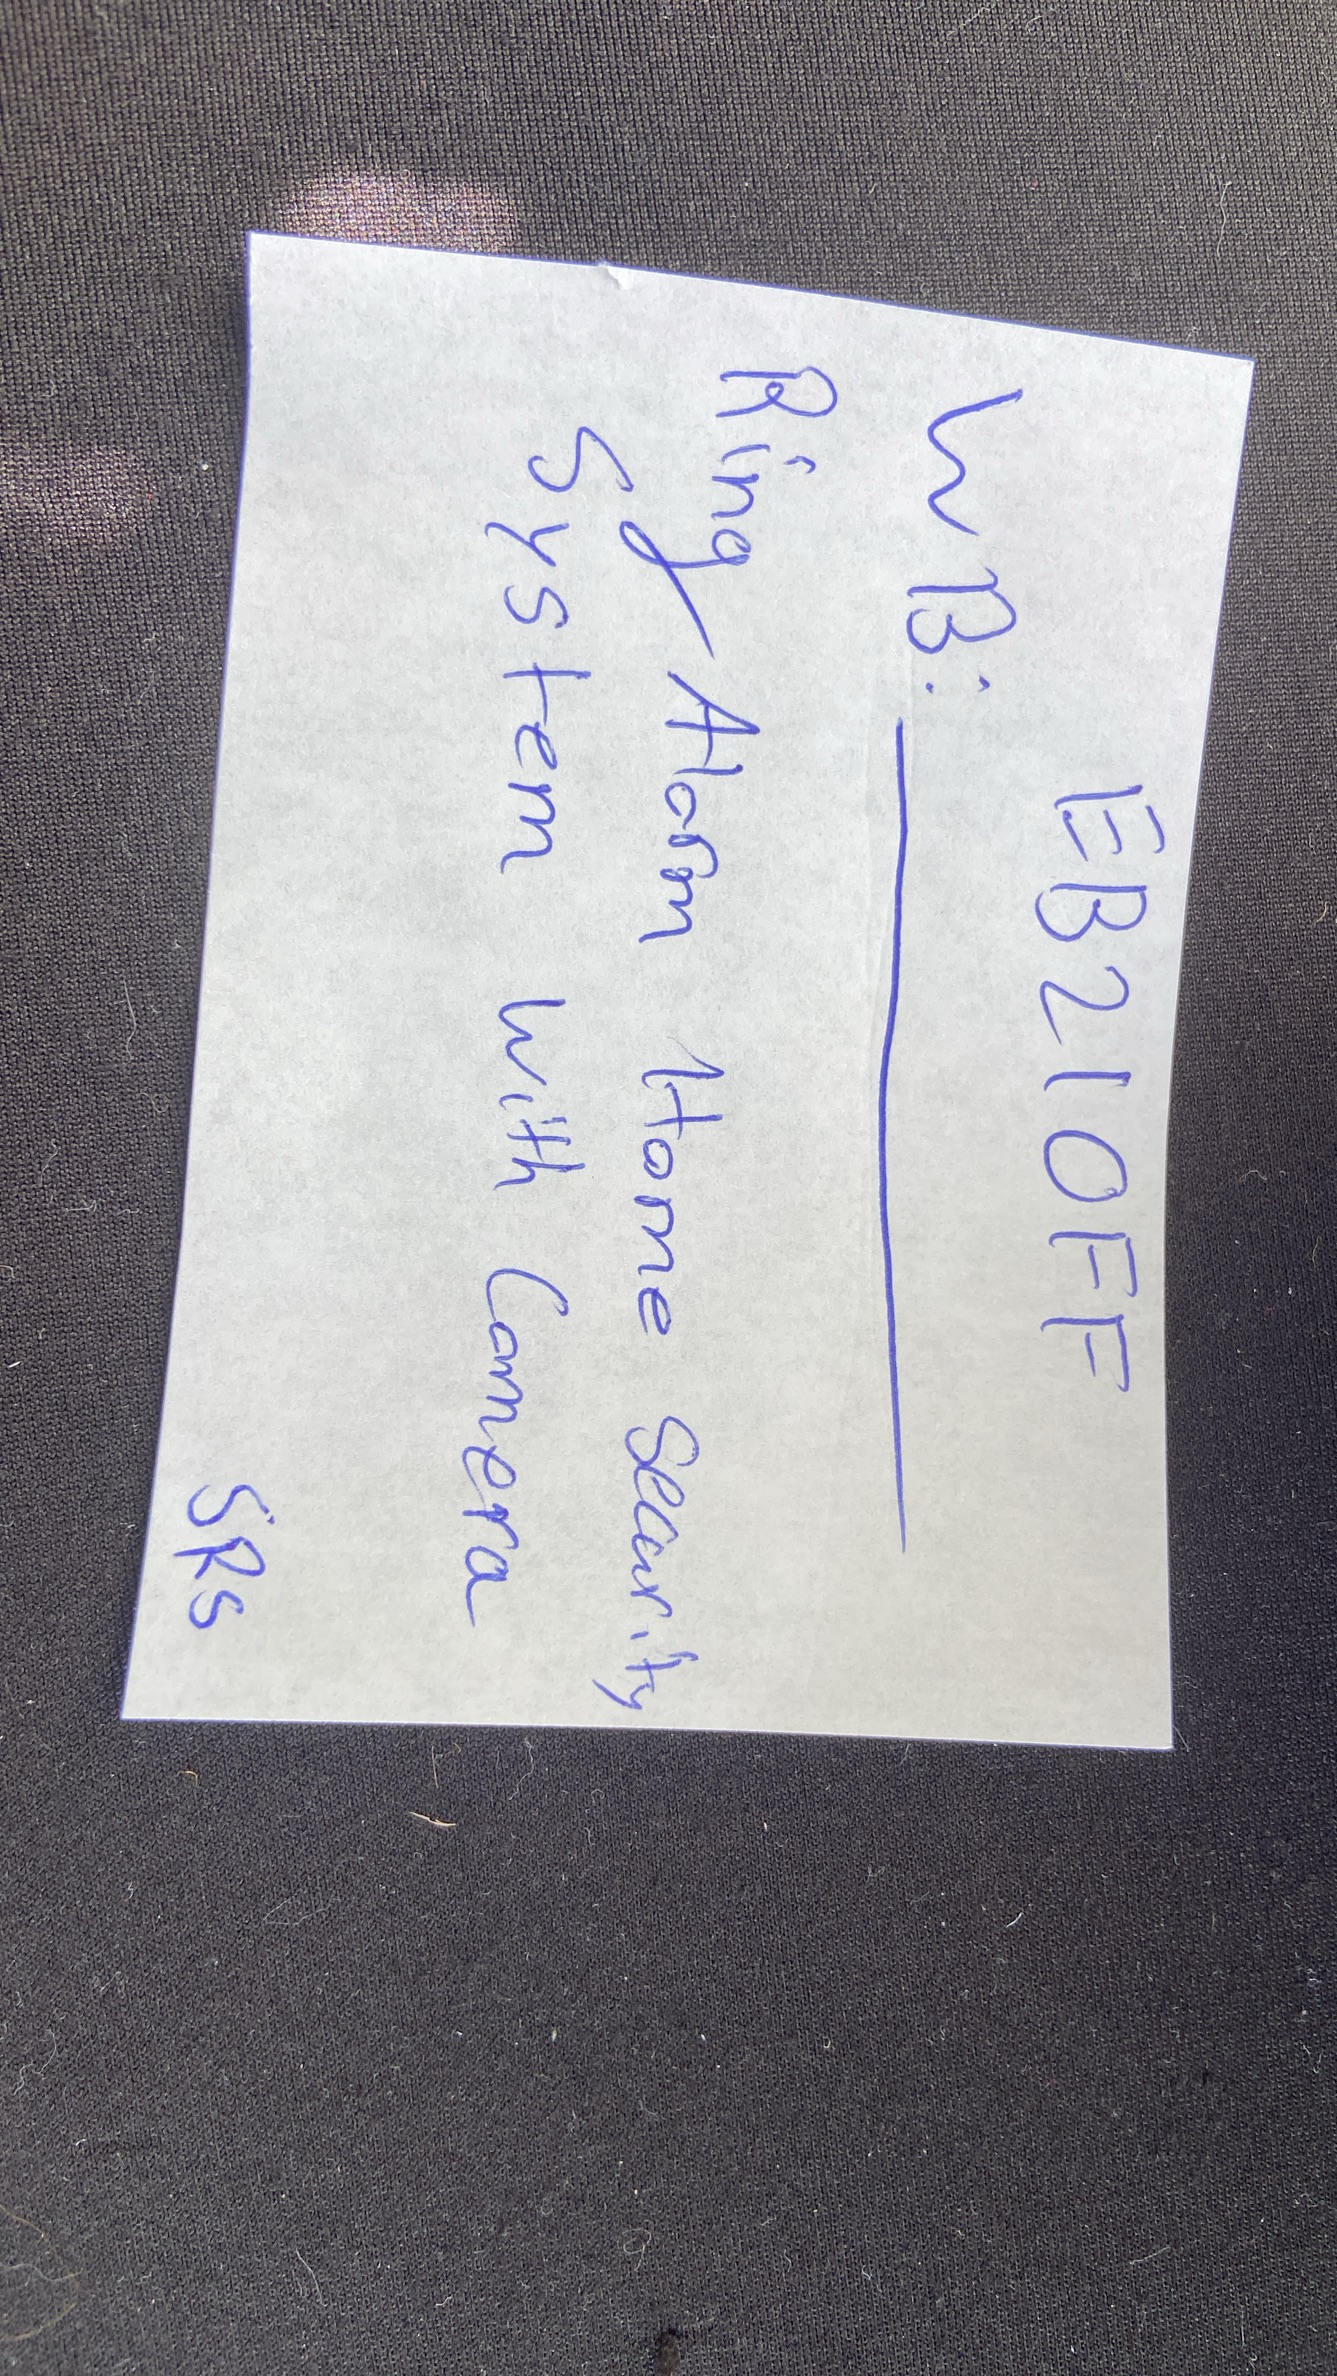 EB210FF
WB:
Ring Alarm Home Security
System with Camera
SRS